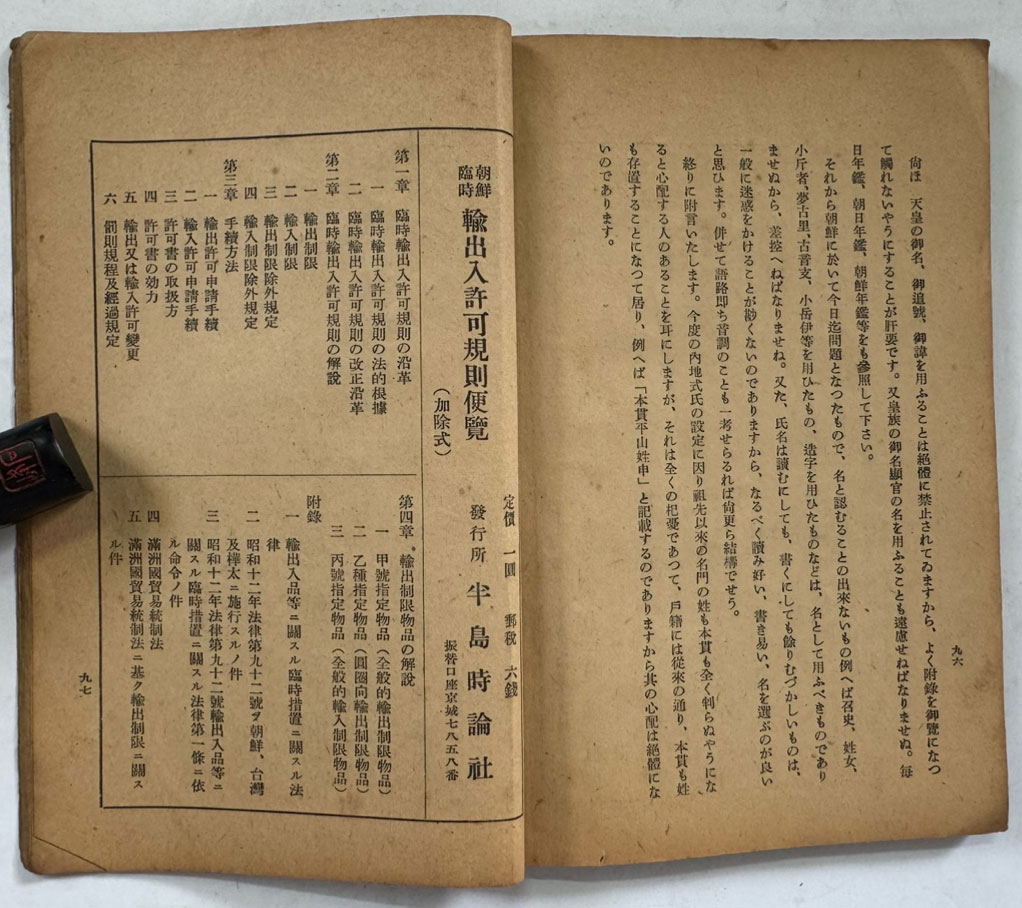 尙ほ　天皇の御名、御追號、御諱を用ふることは絕體に禁止されてゐますから、よく附錄を御覽になつ
て觸れないやうにすることが肝要です。又皇族の御名顯官の名を用ふることも遠慮せねばなりませぬ。每
日年鑑、朝日年鑑、朝鮮年鑑等をも參照して下さい。
それから朝鮮に於いて今日迄問題となつたもので、名と認むることの出來ないもの例へば召史、姓女、
小斤者、夢古里、古音支、小岳伊等を用ひたもの、造字を用ひたものなどは、名として用ふべきものであり
ませぬから、差控へねばなりませね。又た、氏名は讀むにしても、書くにしても餘りむづかしいものは、
一般に迷惑をかけることが尠くないのでありますから、なるべく讀み好い、書き易い、名を選ぶのが良い
と思ひます。併せて語路卽ち音調のことも一考せらるれば尙更ら結構でせう。
終りに附言いたします。今度の內地式氏の設定に因り祖先以來の名門の姓も本貫も全く判らぬやうにな
ると心配する人のあることを耳にしますが、それは全くの杞憂であつて、戶籍には從來の通り、本貫も姓
も存置することになつて居り、例へば「本貫平山姓申」と記載するのでありますから其の心配は絕體にな
いのであります。
九六
朝鮮
臨時
輸出入許可規則便覽
（加除式）
定價　一圓　郵稅　六錢
發行所　半島時論社
振替口座京城七八五八番
第一章　臨時輸出入許可規則の沿革
一　臨時輸出入許可規則の法的根據
二　臨時輸出入許可規則の改正沿革
第二章　臨時輸出入許可規則の解說
一　輸出制限
二　輸入制限
三　輸出制限除外規定
四　輸入制限除外規定
第三章　手續方法
一　輸出許可申請手續
二　輸入許可申請手續
三　許可書の取扱方
四　許可書の効力
五　輸出又は輸入許可變更
六　罰則規程及經過規定
第四章　輸出制限物品の解說
一　甲號指定物品（全般的輸出制限物品）
二　乙種指定物品（圓圈向輸出制限物品）
三　丙號指定物品（全般的輸入制限物品）
附錄
一　輸出入品等ニ關スル臨時措置ニ關スル法
律
二　昭和十二年法律第九十二號ヲ朝鮮、台灣
及樺太ニ施行スルノ件
三　昭和十二年法律第九十二號輸出入品等ニ
關スル臨時措置ニ關スル法律第一條ニ依
ル命令ノ件
四　滿洲國貿易統制法
五　滿洲國貿易統制法ニ基ク輸出制限ニ關ス
ル件
九七